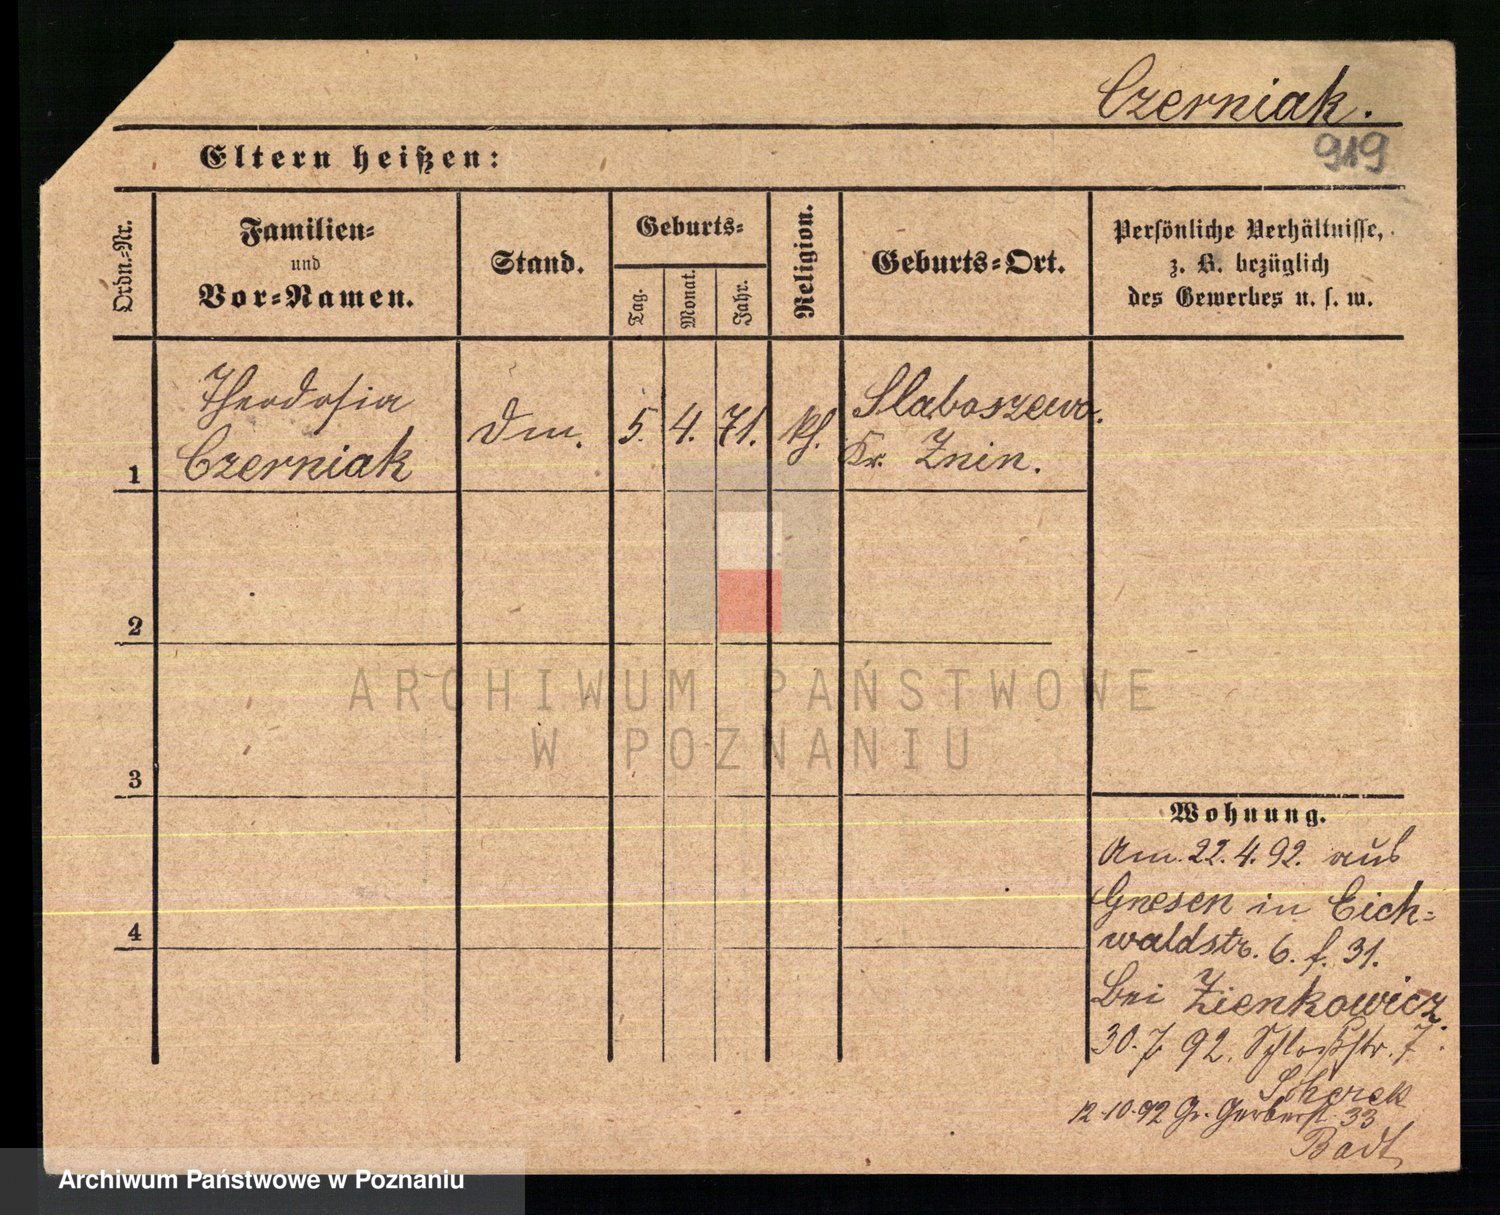 Czerniak.
919
Eltern heißen:
Ordn.-Nr.
Familien-
und
Vor-Namen.
Stand.
Geburts-
Tag.
Monat.
Jahr.
Religion.
Geburts-Ort.
Persönliche Verhältnisse,
z. B. bezüglich
des Gewerbes u. s. w.
1
Theodosia
Czerniak
5. 4. 71.
Slaboszewo.
Kr. Znin.
2
3
4
Wohnung.
Am 22.4.92. aus
Gnesen in Eich-
waldstr. 6. f. 31.
bei Zienkowicz
30.7.92. Schloßstr. 7.
Scherek
12.10.92 Gr. Gerberst. 33
Badt
ARCHIWUM PAŃSTWOWE
W POZNANIU
Archiwum Państwowe w Poznaniu